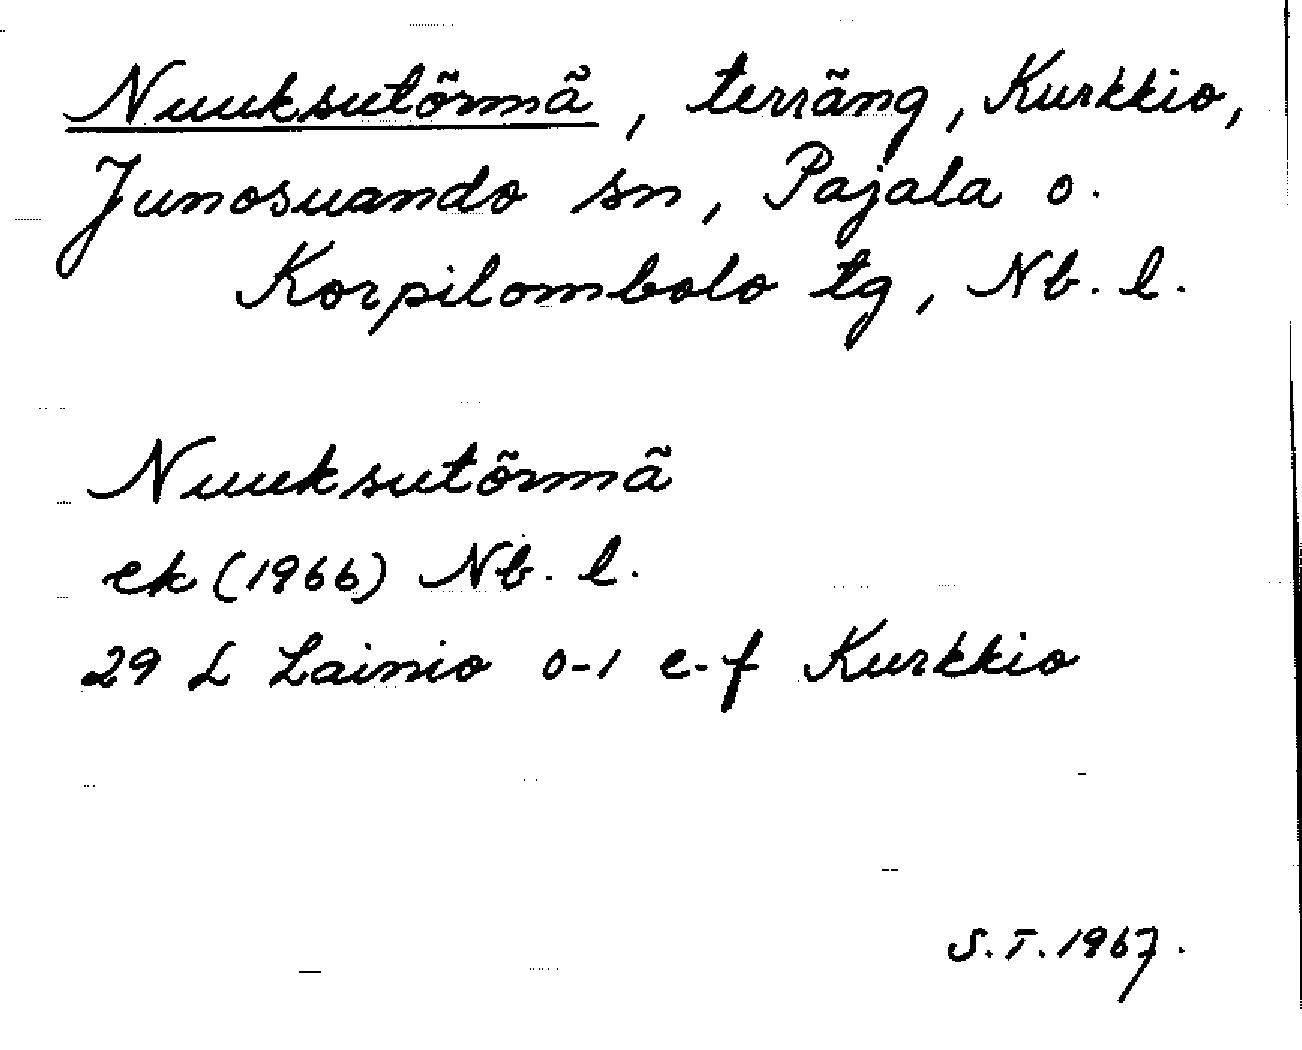 Nuuksutörmä, terräng, Kurkkio,
Junosuando sn, Pajala o.
Korpilombolo tg, Nb. l.
Nuuksutörmä
ek (1966) Nb. l.
29 L Lainio 0-1 e-f Kurkkio
S.T. 1967.